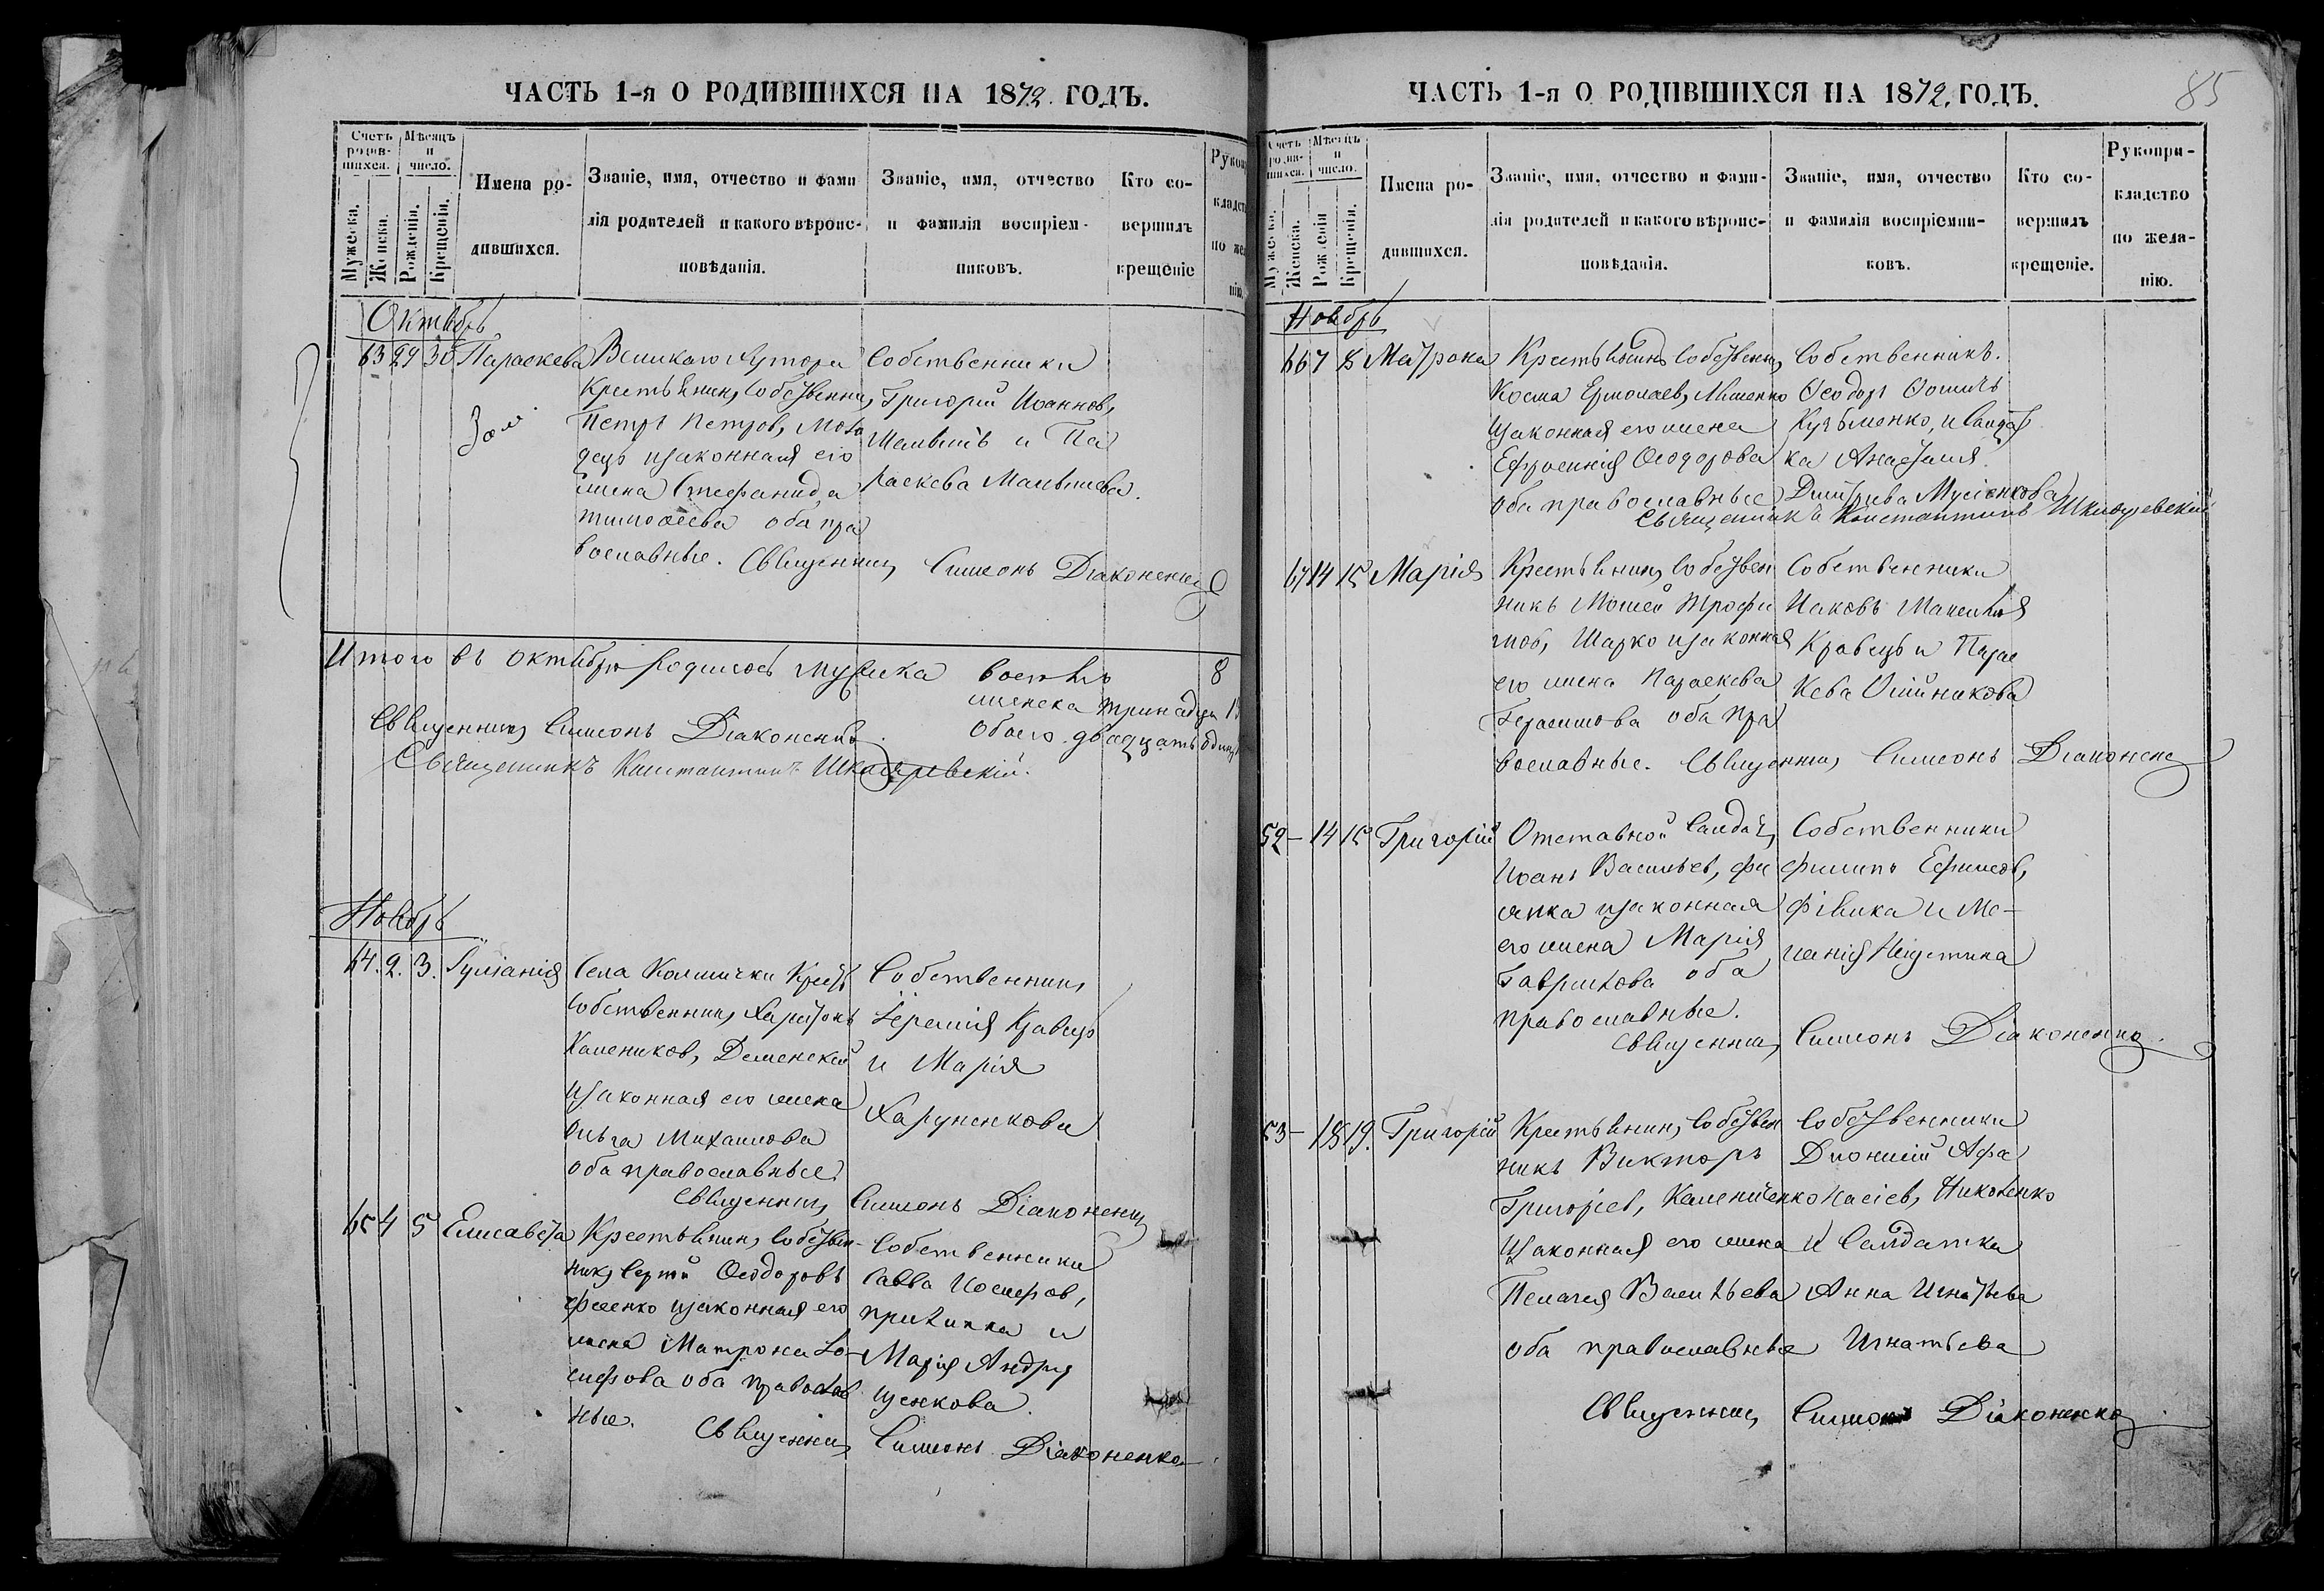 ЧАСТЬ 1-я О РОДИВШИХСЯ НА 1872. ГОДЪ.
Счетъ родив-шихся.
Мѣсяцъ и число.
Мужеска.
Женска.
Рожденія.
Крещенія.
Имена ро-
дившихся.
Званіе, имя, отчество и фами
лія родителей и какого вѣроис-
повѣданія.
Званіе, имя, отчество
и фамилія воспріем-
никовъ.
Кто со-
вершилъ
крещеніе
Октябрь
63 29 30 Параскева
Крестьянинъ Собствен
Петръ Петровъ
децъ изаконная его
жена Стефанида
Тимоѳеева оба пра
вославные.
Собственники
Григорій Іоанновъ
и Па
раскева
Священникъ Симеонъ Діаконенко
Итого въ октябрѣ родилось мужеска восемь 8
женска тринадца
Обоего двадцать один
Священникъ Симеонъ Діаконенко.
Священникъ Константинъ
Ноябрь
64. 2. 3. Іуліанія
Села Крест
Собственникъ Харитонъ
изаконная его жена
Ольга Михаилова
оба православные
Собственникъ
Іеремія Кравецъ
и Марія
Харуненкова
Священникъ Симеонъ Діаконенко
65 4 5 Елисавета
Крестьянинъ Собствен-
никъ Сергій Ѳеодоровъ
изаконная его
жена Матрона Іо-
сифова оба православ
ные.
Собственники
Савва Іосифовъ,
и
Марія Андру
щенкова.
Священникъ Симеонъ Діаконенко
ЧАСТЬ 1-я О РОДИВШИХСЯ НА 1872. ГОДЪ.
85
Счетъ родив-шихся.
Мѣсяцъ и число.
Мужеска.
Женска.
Рожденія
Крещенія.
Имена ро-
дившихся.
Званіе, имя, отчество и фами-
лія родителей и какого вѣроис-
повѣданія.
Званіе, имя, отчество
и фамилія воспріемни-
ковъ.
Кто со-
вершилъ
крещеніе.
Рукопри-
кладство
по жела-
нію.
Ноябрь
66 7 8 Матрона
Крестьянинъ Собствен
Косма Ермолаевъ
изаконная его жена
Ефросинія Ѳеодорова
оба православные
Собственникъ.
Ѳеодоръ Ѳомичъ
Кузьменко, и Солдат
ка Анастасія
Дмитріева Мусіенкова
Священникъ Константинъ
67 14 15 Марія
Крестьянинъ Собствен
никъ Мойсей Трофи
мовъ, Шарко изаконная
его жена Параскева
Герасимова оба пра
вославные.
Собственники
Іаковъ
Кравецъ и Парас
кева Олійникова
Священникъ Симеонъ Діаконенко
52 - 14 15 Григорій
Отставной Солдатъ
Іоанъ Васильевъ, фи
липка изаконная
его жена Марія
Гаврилова оба
православные.
Собственники
Филипъ Ефимовъ,
и Ме-
ланія
Священникъ Симеонъ Діаконенко.
53 - 18 19. Григорій
Крестьянинъ Собствен
никъ Викторъ
Григорьевъ,
изаконная его жена
Пелагея Васильева
оба православные
Собственники
Діонисій Афа
насіевъ,
и Солдатка
Анна Игнатьева
Игнатьева
Священникъ Симеонъ Діаконенко.